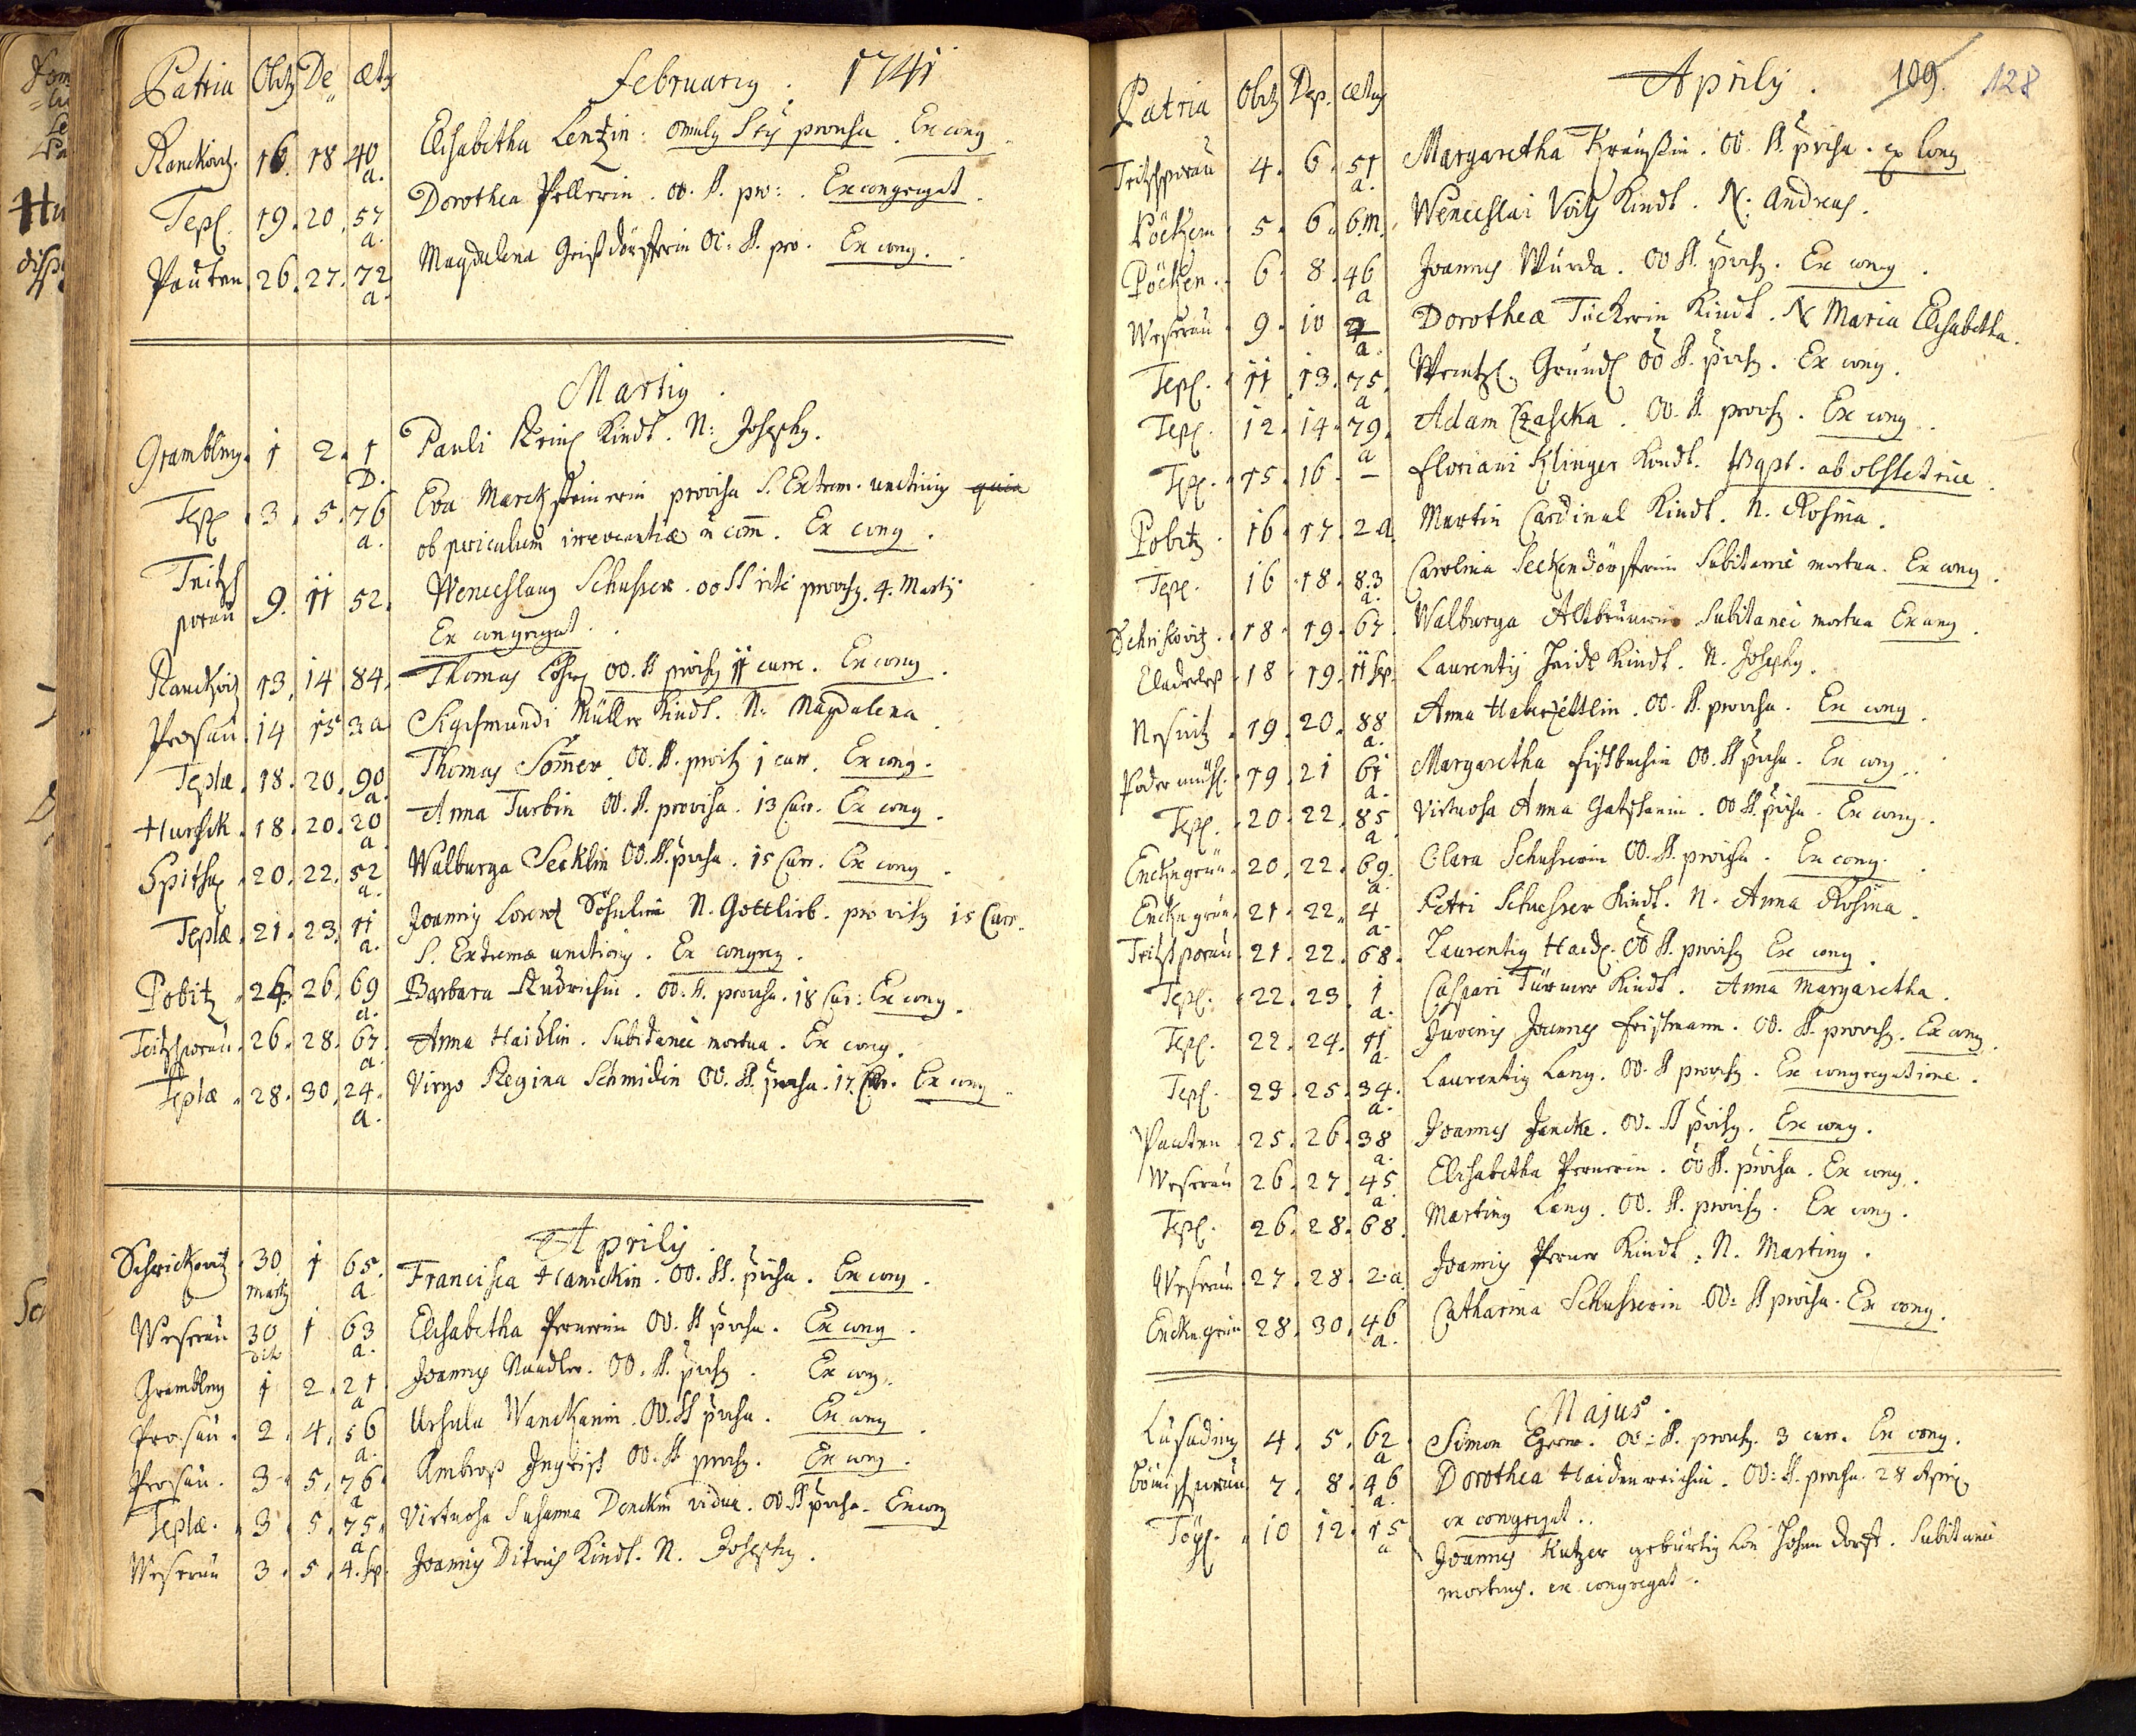 Patria Obitg De æt9 Februarig. 1741
Ranckowitz. 16. 18 40 a. Elisabetha Lentzin. omnibg Stis provisa. Ex cong.
Tepl. 19. 20. 57 a. Dorothea Pellerin. oo. SS. pro:. Ex congregat.
Pauten. 26. 27. 72 a. Magdalena oo: SS. pro. Ex cong.
Martig.
Grambling. 1 2. 1 D. Pauli Kindl. N: Josephg.
Tepl 3. 5. 76 a. Eva Marckhsteinerin provisa S. Extrem. unctionig quia
ob periculum irreverentiæ in com. Ex cong.
Tritzsch
porau 9. 11 52. Wenceslaug Schusser. oo SS rite provisg. 4. Martij
Ex congregat.
Ranckowitz 13. 14 84. Thomas oo. SS provisg 11 curr. Ex cong.
Prosau. 14 15 3 a Sigismundi Müller Kindl. N. Magdalena.
Teplæ. 18. 20. 90 a. Thomas Som̄er. oo. SS. provisg 1 curr. Ex cong.
Hurschk. 18. 20. 20 a Anna Turbin oo. SS. provisa. 13 Curr. Ex cong.
20. 22. 52 a. Walburga Secklin oo. SS. provisa. 15 Curr. Ex cong.
Teplæ. 21. 23. 11 a. Joannig Lorentz Söhnlein N. Gottlieb. provisg 15 Curr.
S. Extrema unctionig. Ex congreg.
Pobitz. 24. 26. 69 a. Barbara Rudrichin. oo. SS. provisa. 18 Cur: Ex cong.
Tritzschporau. 26. 28. 67 a. Anna Haidlin. Subitanee mortua. Ex cong.
Teplæ. 28. 30. 24. a. Virgo Regina Schmidin oo. SS. provisa. 17 Curr. Ex cong.
Aprilij.
Schrickowitz. 30 Martij 1 65. a. Francisca Hanickin. oo. SS. provisa. Ex cong.
Weserau 30 dito 1 63 a. Elisabetha Pernerin oo. SS provisa. Ex cong.
Grambling 1 2. 21. a Joannes Naudler. oo. SS. provisg. Ex cong.
Prosau. 2. 4. 56 a. Ursula Wanckanin. oo. SS provisa. Ex cong.
Prosau. 3. 5. 76. a Ambros oo. SS provisg. Ex cong.
Teplæ. 3. 5. 75. a Virtuosa Susanna Denckin vidua. oo SS provisa. Ex cong
Weserau 3. 5. 4. Sp. Joannig Ditrich Kindl. N. Josephg.
Patria Obitg Dep. ætatg Aprilij. 109. 128
Tritzschporau 4. 6. 51 a. Margaretha Kräußin. oo. SS. provisa. ex Cong
Pöcken. 5. 6. 6 m. Wenceslai Voitz Kindl. N. Andreas.
Pöcken. 6. 8. 46 a Joannes Wurda. oo SS. provisg. Ex cong.
Weserau. 9. 10 a. Dorotheæ Tuckerin Kindl. N Maria Elisabetha.
Tepl. 11. 13. 75. a Wentzl Grundl oo SS. provisg. Ex cong.
Tepl. 12. 14. 79. a Adam Czaska. oo. SS. provisg. Ex cong.
Tepl. 15. 16. – Floriani Klinger Kindl. Bapt. ab obstetrice.
Pobitz. 16. 17. 2 a. Martin Cardinal Kindl. N. Rosina.
Tepl. 16. 18. 83 a. Carolina Seckendörfferin Subitanee mortua. Ex cong.
Schrikowitz. 18. 19. 67. Walburga Subitanee mortua Ex cong.
18. 19. 11 Sp. Laurentij Haidl Kindl. N. Josephg.
Nesnitz. 19. 20. 88 a. Anna Haberzettlin. oo. SS. provisa. Ex cong.
Podermühl. 19. 21 61 a. Margaretha Fischbachin oo. SS provisa. Ex cong.
Tepl. 20. 22. 85 a Virtuosa Anna oo SS. provisa. Ex cong.
Enckengrün. 20. 22. 69. a. Clara Schusserin oo. SS. provisa. Ex cong.
Enckengrün. 21. 22. 4 a. Petri Schusser Kindl. N. Anna Rosina.
Tritzschporau. 21. 22. 68. Laurentig Haidl. oo SS. provisg Ex cong.
Tepl. 22. 23. 1 a. Caspari Türmer Kindl. Anna Margaretha.
Tepl. 22. 24. 11 a. Juvenis Joannes Fristmann. oo. SS. provisg. Ex cong.
Tepl. 23. 25. 34. a. Laurentig Lang. oo. SS provisg. Ex congregatione.
Pauten 25. 26. 38 a. Joannes Jencke. oo. SS provisg. Ex cong.
Weserau 26. 27. 45 a. Elisabetha Pernerin. oo SS. provisa. Ex cong.
Tepl. 26. 28. 68. Marting Lang. oo. SS. provisg. Ex cong.
Weserau. 27. 28. 2. a. Joannig Perner Kindl. N. Marting.
Enckengrün 28. 30. 46 a. Catharina Schusserin oo: SS provisa. Ex cong.
Majus.
Lusading 4. 5. 62 a Simon Egerer. oo: SS. provisg. 3 curr. Ex cong.
Bömischporau 7. 8. 46 a. Dorothea Haidenreichin. oo: SS. provisa. 28 April
ex congregat.
Töpl. 10 12. 15 a Joannes Kutzer gebürtig von Hohendorff. Subitanee
mortuus. ex congregat.